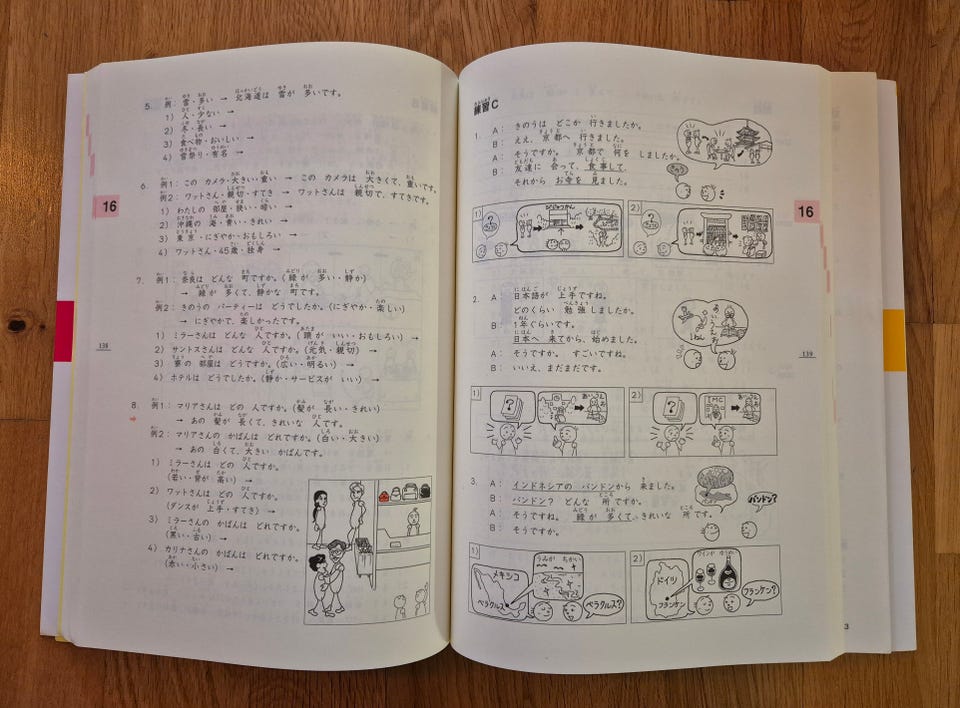 5. 例：雪・多い → 北海道は 雪が 多いです。
1) 人・少ない →
2) 冬・長い →
3) 食べ物・おいしい →
4) 雪祭り・有名 →
6. 例1：この カメラ・大きい・重い → この カメラは 大きくて、重いです。
例2：ワットさん・親切・すてき → ワットさんは 親切で、すてきです。
1) わたしの 部屋・狭い・暗い →
2) 沖縄の 海・青い・きれい →
3) 東京・にぎやか・おもしろい →
4) ワットさん・45歳・独身 →
7. 例1：奈良は どんな 町ですか。(緑が 多い・静か)
→ 緑が 多くて、静かな 町です。
例2：きのうの パーティーは どうでしたか。(にぎやか・楽しい)
→ にぎやかで、楽しかったです。
1) ミラーさんは どんな 人ですか。(頭が いい・おもしろい) →
2) サントスさんは どんな 人ですか。(元気・親切) →
3) 寮の 部屋は どうですか。(広い・明るい) →
4) ホテルは どうでしたか。(静か・サービスが いい) →
8. 例1：マリアさんは どの 人ですか。(髪が 長い・きれい)
→ あの 髪が 長くて、きれいな 人です。
例2：マリアさんの かばんは どれですか。(白い・大きい)
→ あの 白くて、大きい かばんです。
1) ミラーさんは どの 人ですか。
(若い・背が 高い) →
2) ワットさんは どの 人ですか。
(ダンスが 上手・すてき) →
3) ミラーさんの かばんは どれですか。
(黒い・古い) →
4) カリナさんの かばんは どれですか。
(赤い・小さい) →
16
138
練習C
1. A： きのうは どこか 行きましたか。
B： ええ、京都へ 行きました。
A： そうですか。京都で 何を しましたか。
B： 友達に 会って、食事して、
それから お寺を 見ました。
1)
びじゅつかん
2)
2. A： 日本語が 上手ですね。
どのくらい 勉強しましたか。
B： 1年ぐらいです。
日本へ 来てから、始めました。
A： そうですか。すごいですね。
B： いいえ、まだまだです。
あいうえお
1ねん
1)
?
あいうえお
2)
?
IMC
3. A： インドネシアの バンドンから 来ました。
B： バンドン？ どんな 所ですか。
A： そうですね。緑が 多くて、きれいな 所です。
B： そうですか。
バンドン?
1)
メキシコ
ベラクルス
うみが ちかい
ベラクルス?
2)
ドイツ
フランケン
ワインが ゆうめい
フランケン?
16
139
3